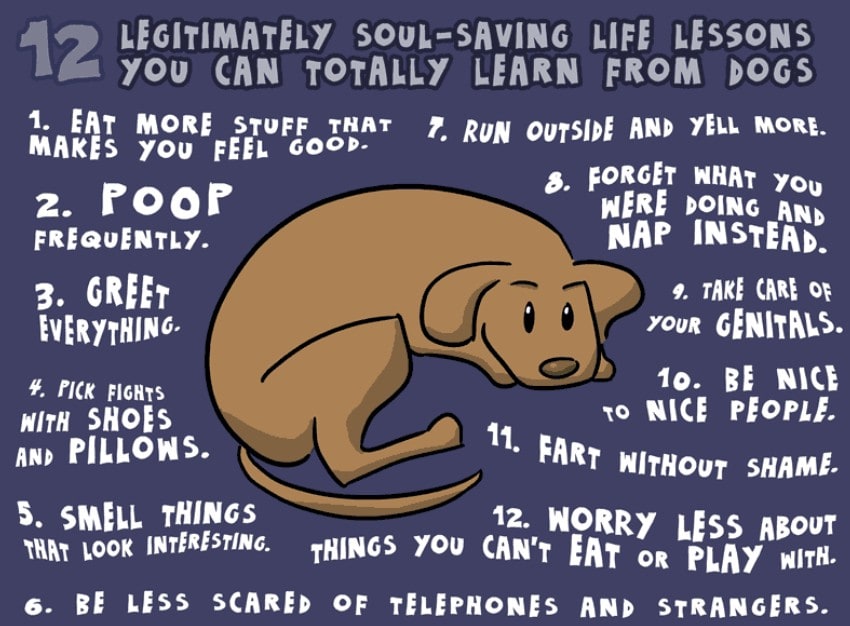 12 LEGITIMATELY SOUL-SAVING LIFE LESSONS
YOU CAN TOTALLY LEARN FROM DOGS
1. EAT MORE STUFF THAT
MAKES YOU FEEL GOOD.
2. POOP
FREQUENTLY.
3. GREET
EVERYTHING.
4. PICK FIGHTS
WITH SHOES
AND PILLOWS.
5. SMELL THINGS
THAT LOOK INTERESTING.
6. BE LESS SCARED OF TELEPHONES AND STRANGERS.
7. RUN OUTSIDE AND YELL MORE.
8. FORGET WHAT YOU
WERE DOING AND
NAP INSTEAD.
9. TAKE CARE OF
YOUR GENITALS.
10. BE NICE
TO NICE PEOPLE.
11. FART WITHOUT SHAME.
12. WORRY LESS ABOUT
THINGS YOU CAN'T EAT OR PLAY WITH.